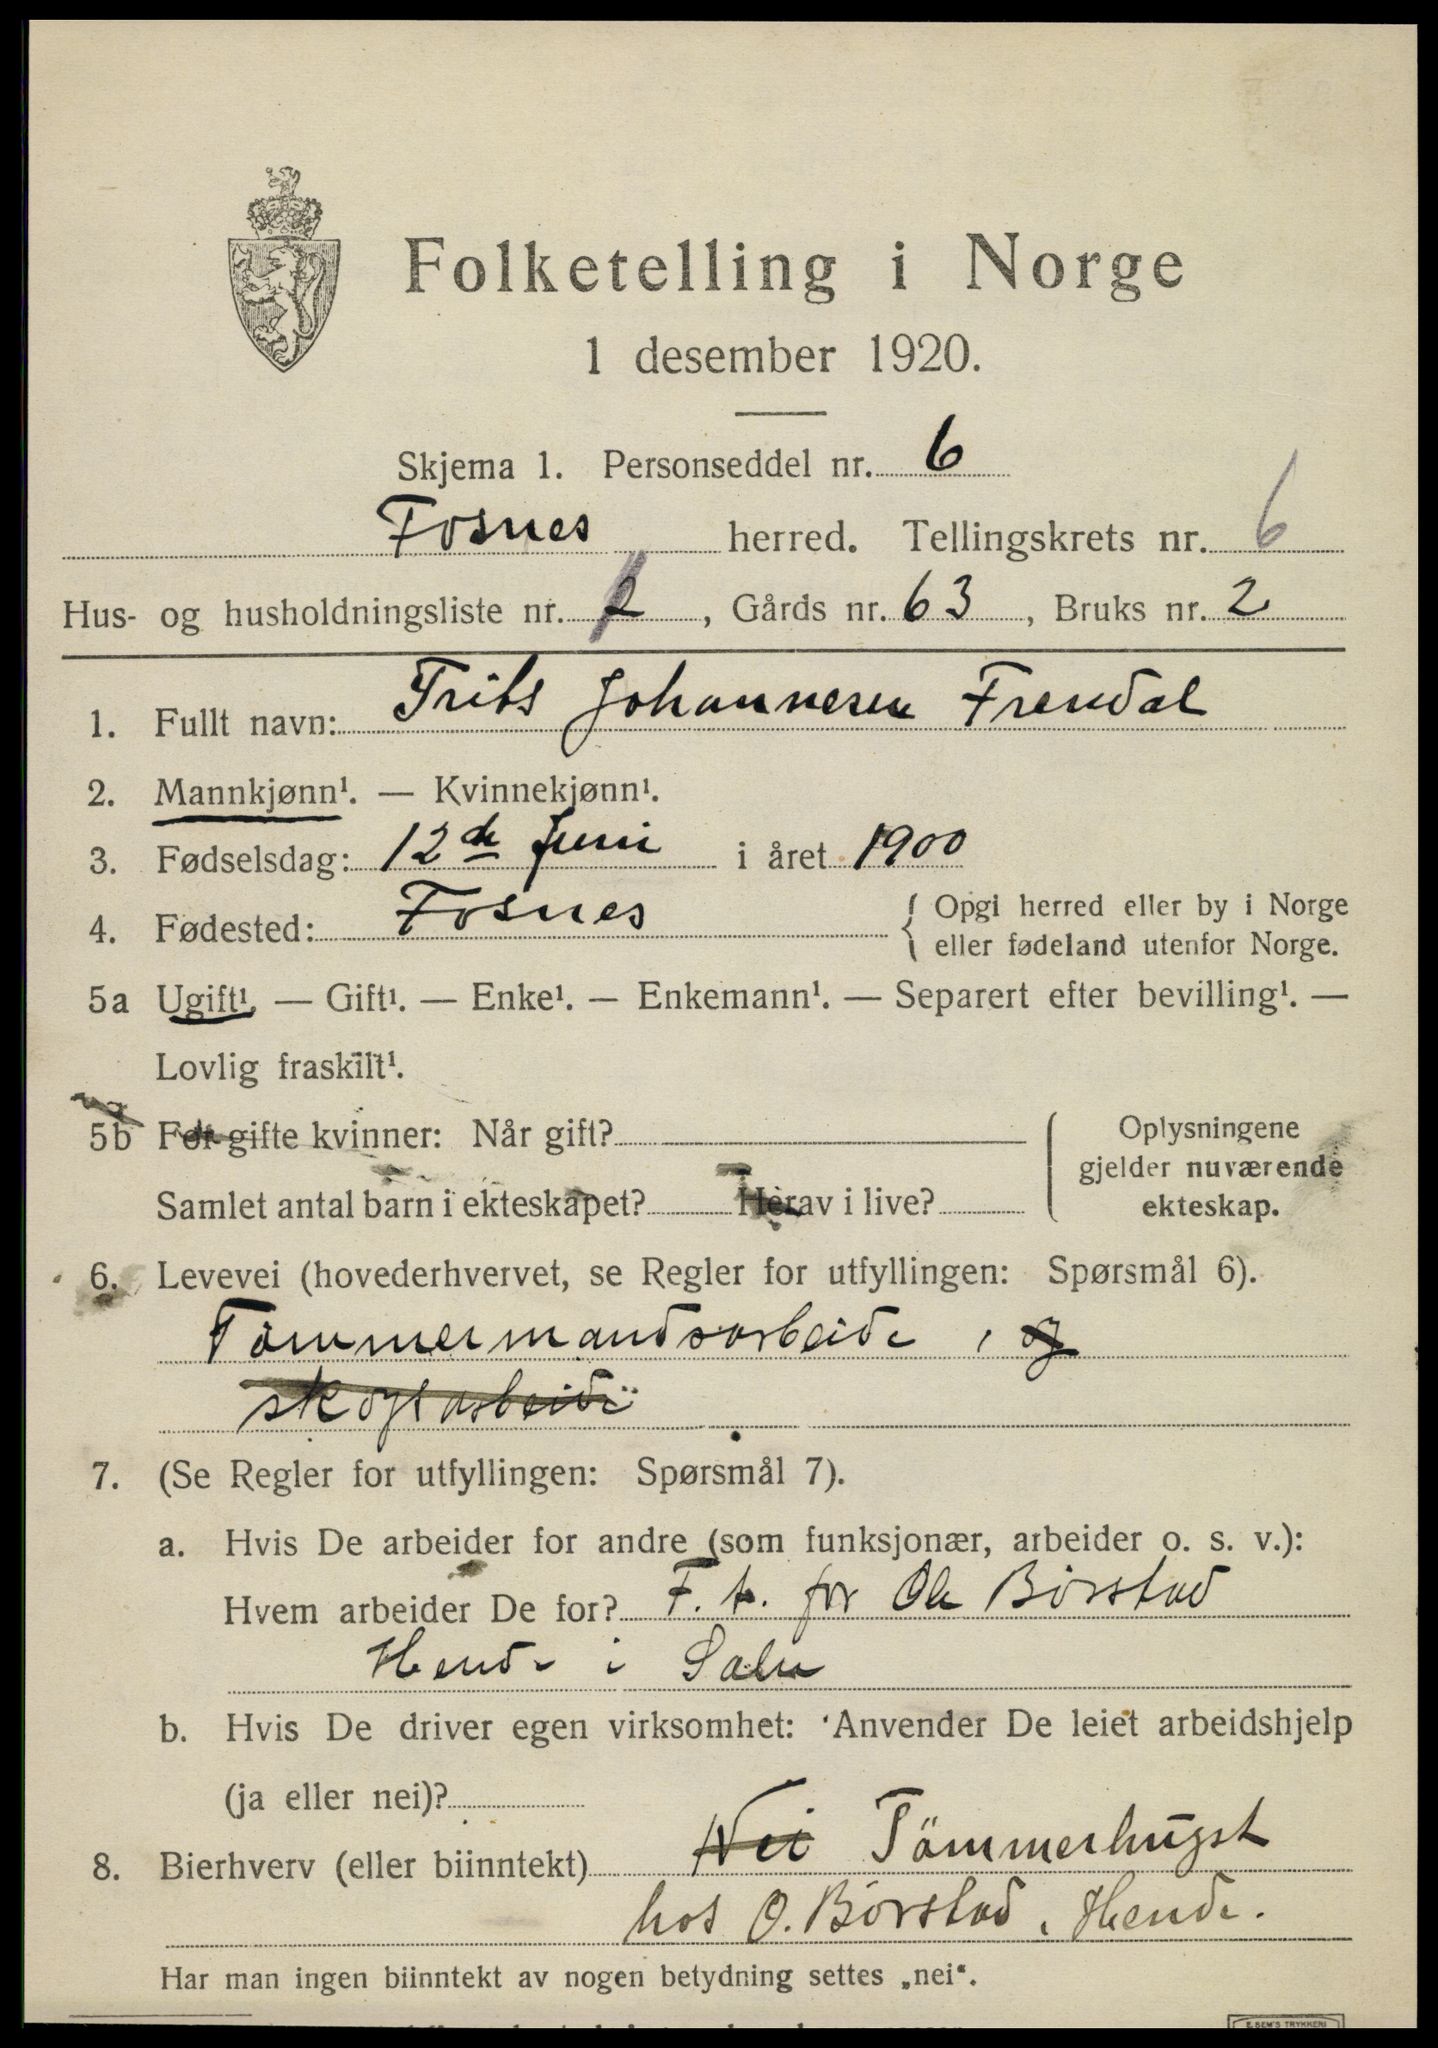 Folketelling i Norge
1 desember 1920.
Skjema 1. Personseddel nr. 6
Fosnes herred. Tellingskrets nr. 6
Hus- og husholdningsliste nr. 2, Gårds nr. 63, Bruks nr. 2
1. Fullt navn: Frits Johannesen Frendal
2. Mannkjønn¹. — Kvinnekjønn¹.
3. Fødselsdag: 12de Juni i året 1900
4. Fødested: Fosnes { Opgi herred eller by i Norge
eller fødeland utenfor Norge.
5a Ugift¹. — Gift¹. — Enke¹. — Enkemann¹. — Separert efter bevilling¹. —
Lovlig fraskilt¹.
5b For gifte kvinner: Når gift? ( Oplysningene
gjelder nuværende
Samlet antal barn i ekteskapet? Herav i live? ekteskap.
6. Levevei (hovederhvervet, se Regler for utfyllingen: Spørsmål 6).
Tömmermandsarbeide, og
skogsarbeide
7. (Se Regler for utfyllingen: Spørsmål 7).
a. Hvis De arbeider for andre (som funksjonær, arbeider o. s. v.):
Hvem arbeider De for? F. t. for Ole Börstad
i
b. Hvis De driver egen virksomhet: Anvender De leiet arbeidshjelp
(ja eller nei)?
8. Bierhverv (eller biinntekt) Nei Tömmerhugst
hos O. Börstad, Hende.
Har man ingen biinntekt av nogen betydning settes „nei“.
E. SEM'S TRYKKERI